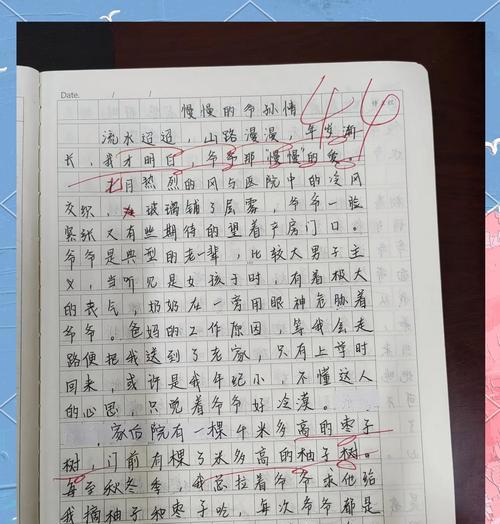 Date. / /
慢慢的爷孙情
44
流水迢迢，山路漫漫，年岁渐
长，我才明白，爷爷那“慢慢”的爱。
七月热烈的风与医院中的冷风
交织，玻璃铺了层雾，爷爷一脸
紧张又有些期待的望着产房门口。
爷爷是典型的老一辈，比较大男子主
义，当听见是女孩子时，有着极大
的丧气，奶奶在一旁用眼神危胁着
爷爷。爸妈的工作原因，等我会走
路便把我送到了老家，只有上学时
回来，或许是我年纪小，不懂这人
的心思，只觉着爷爷好冷漠。
家后院有一棵千米多高的枣子
树，门前有棵了米多高的柚子树。
每至秋冬季，我总拉着爷爷求他给
我摘柚子和枣子吃，每次爷爷都是